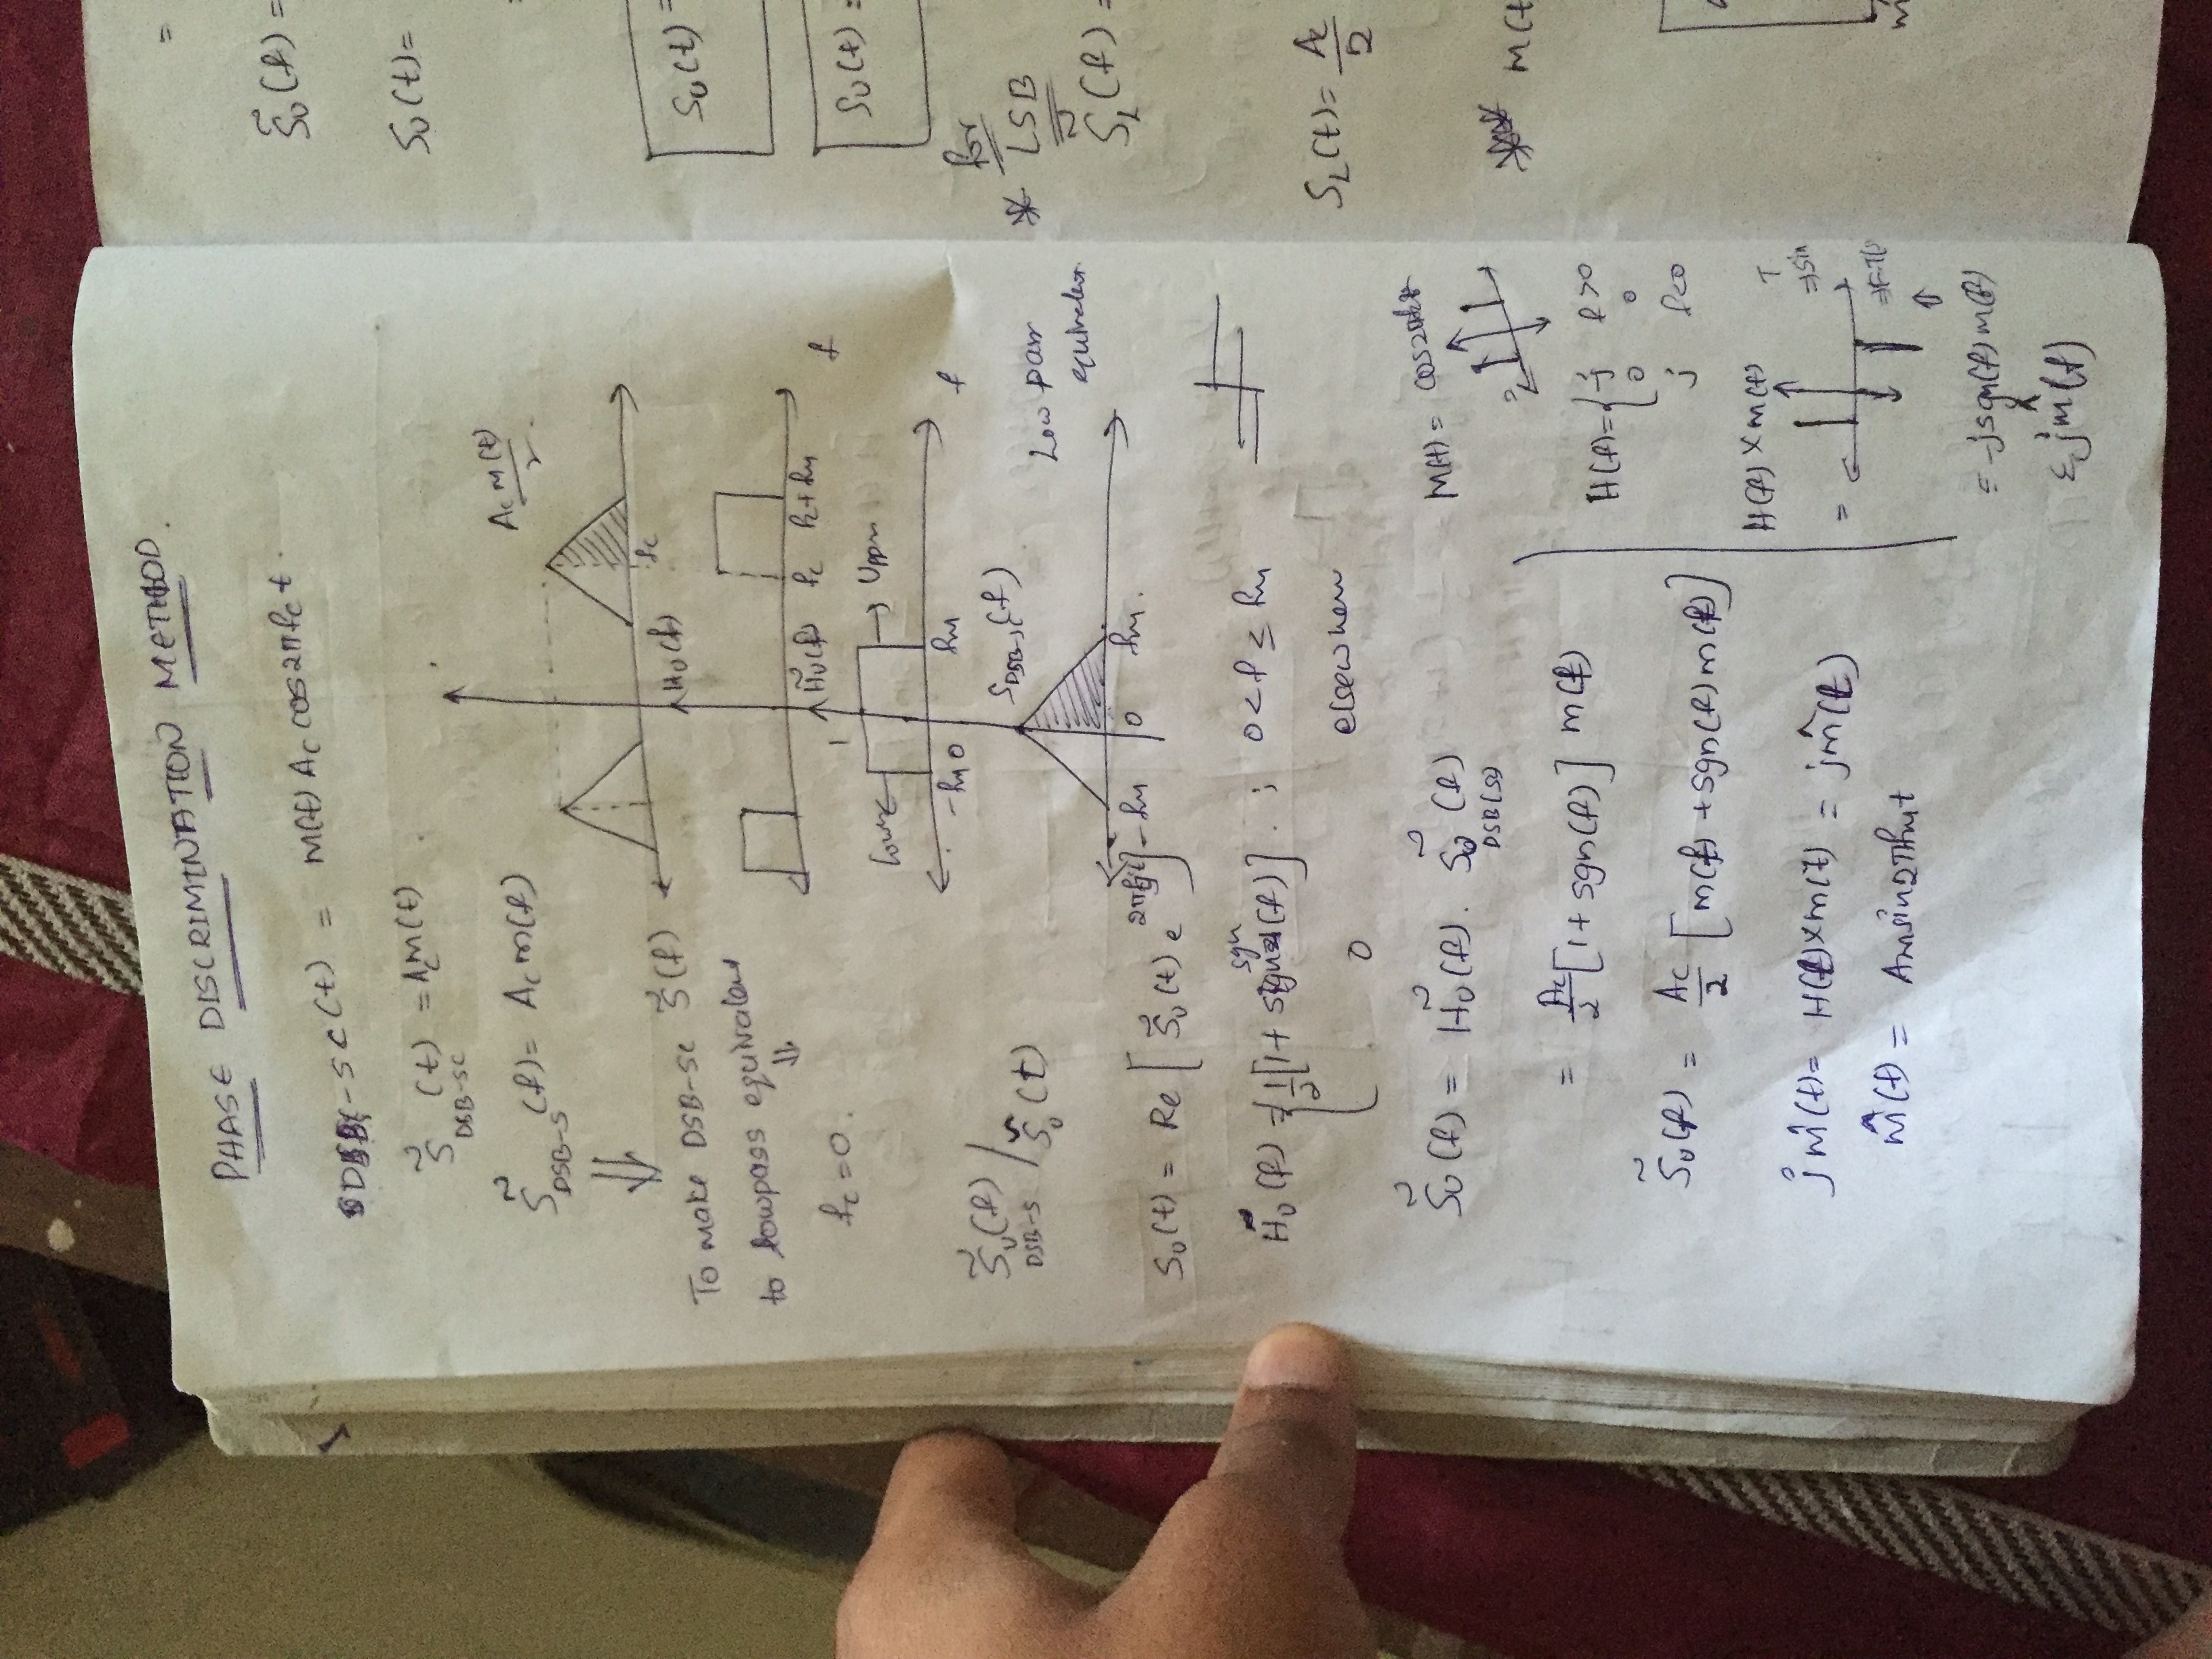 PHASE DISCRIMINATION METHOD.
SDSB-SC(t) = m(t) Ac cos2πfct.
S̃DSB-SC(t) = Acm(t)
S̃DSB-S(f) = Ac m(f)
Ac m(t)/2
fc
To make DSB-SC S̃(f)
to lowpass equivalent
fc = 0.
HU(f)
fc fc+fm f
H̃U(f)
1
Lower Upper
-fm 0 fm f
S̃U(f) DSB-S / S̃U(t)
SDSB-SC(f)
Low pass
equivalent
-fm 0 fm.
SU(t) = Re[S̃U(t) e
H̃U(f) = { 1/2[1+ sgn(f)] ; 0<f≤fm
0 elsewhere
S̃U(f) = H̃U(f). S̃U(f) DSB(SC)
= Ac/2 [1+sgn(f)] m(f)
S̃U(f) = Ac/2 [m(f) + sgn(f)m(f)]
jm̂(t) = H(f)×m(t) = jm̂(t)
m̂(t) = Amsin2πfmt
M(t) = cos2π
H(f) = { -j f>0
0 0
j f<0
H(f) × m(f)
=
= -jsgn(f)m(f)
jm̂(f)
=
S̃U(f) =
SU(t) =
SU(t) =
SU(t) =
* for
LSB
S̃L(f) =
SL(t) = Ac/2
m(t